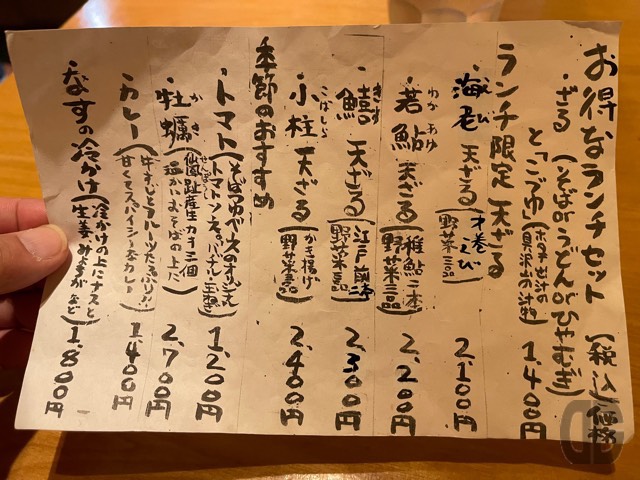 お得なランチセット(税込)価格
・ざる(そばorうどんorひやむぎ)
と「こづゆ」(ホタテ出汁の具沢山の汁物) 1.400円
ランチ限定 天ざる
・海老 天ざる(才巻えび 野菜三品) 2.100円
・若鮎 天ざる(稚鮎二本 野菜三品) 2.200円
・鱚 天ざる(江戸前二本 野菜三品) 2.300円
・小柱 天ざる(かき揚げ 野菜三品) 2.400円
季節のおすすめ
・トマト(トマトソース 1.200円
・牡蠣(仙鳳趾産カキ三個 温かいおそばの上に) 2.700円
・カレー(牛すじとフルーツたっぷり!! 甘くてスパイシーなカレー 1.400円
・なすの冷かけ(冷かけの上にナスと生姜、みょうがなど) 1.800円